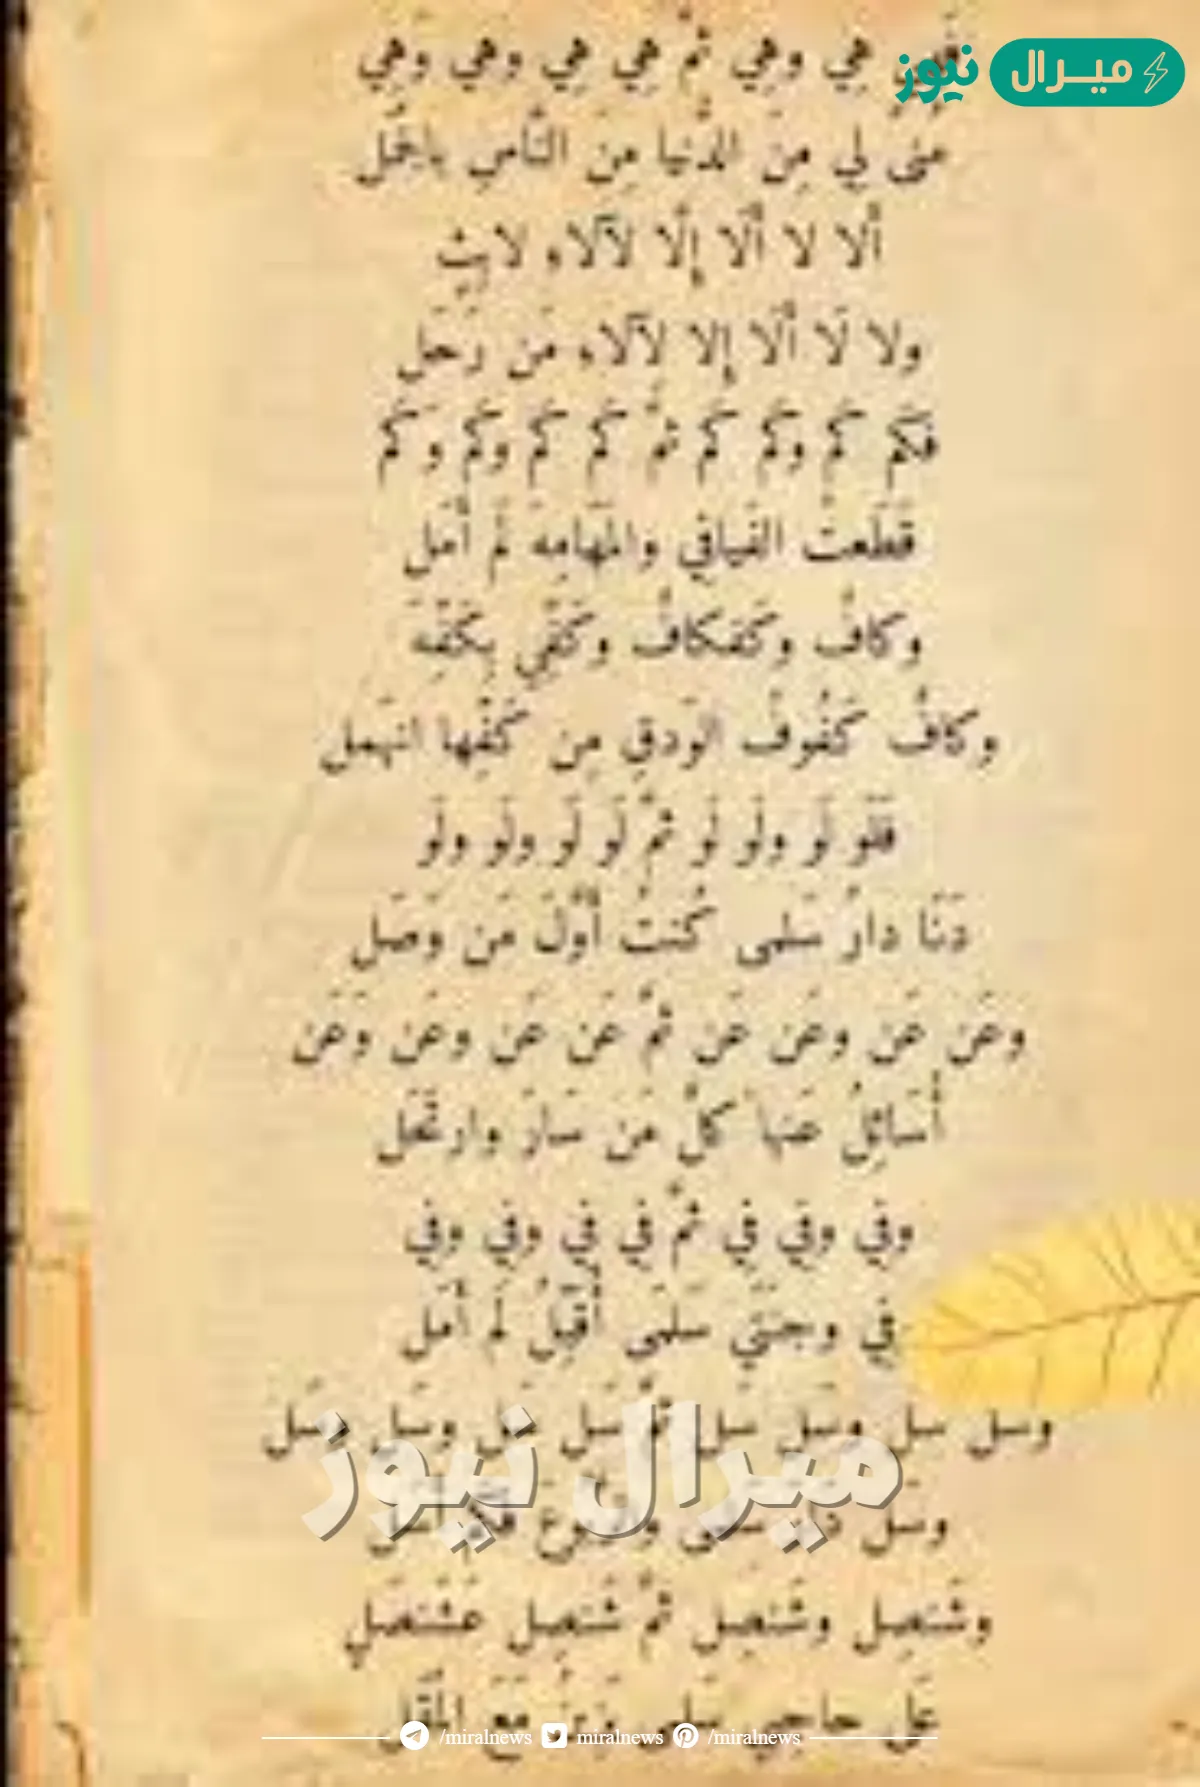 ميرال نيوز
فَهِي هِي وهِي ثمَّ هِي هِي وهي وَهِي
مُنى لِي مِنَ الدُّنيا مِنَ النَّاسِ بالجُمَل
ألا لا ألَا إلَّا لآلاء لابِثٍ
ولا لَا ألَا إلا لِآلاء مَن رَحَل
فكَم كَم وكَم كَم ثمَّ كَم كَم وكَم وَكَم
قَطَعتُ الفَيافِي والمَهَامِهَ لَم أَمَل
وكافٌ وكَفكافٌ وكَفِّي بِكَفِّهَ
وكافٌ كَفُوفُ الوَدقِ مِن كَفِّها انهَمل
فَلَو لَو ولَو لَو ثمَّ لَو لَو ولَو ولَو
دَنَا دارُ سَلمى كُنتُ أوَّلَ مَن وَصَل
وعَن عَن وعَن عَن ثمَّ عَن عَن وعَن وَعَن
أُسَائِلُ عَنها كلَّ مَن سَارَ وارتَحَل
وفِي وفِي فِي ثمَّ فِي فِي وفِي وفِي
فِي وجنَتَي سَلمَى أُقَبِّلُ لَم أَمَل
وسَل سَل وسَل سَل ثمَّ سَل سَل وسَل وسَل
ميرال نيوز
وسَل دَارَ سَلمى والرَّبُوعَ فكَم أسَل
وشَنصِل وشَنصِل ثمَّ شَنصِل عَشَنصَلٍ
عَلى حاجِبي سَلمى يَزِينُ مَعَ المُقَل
/miralnews miralnews /miralnews